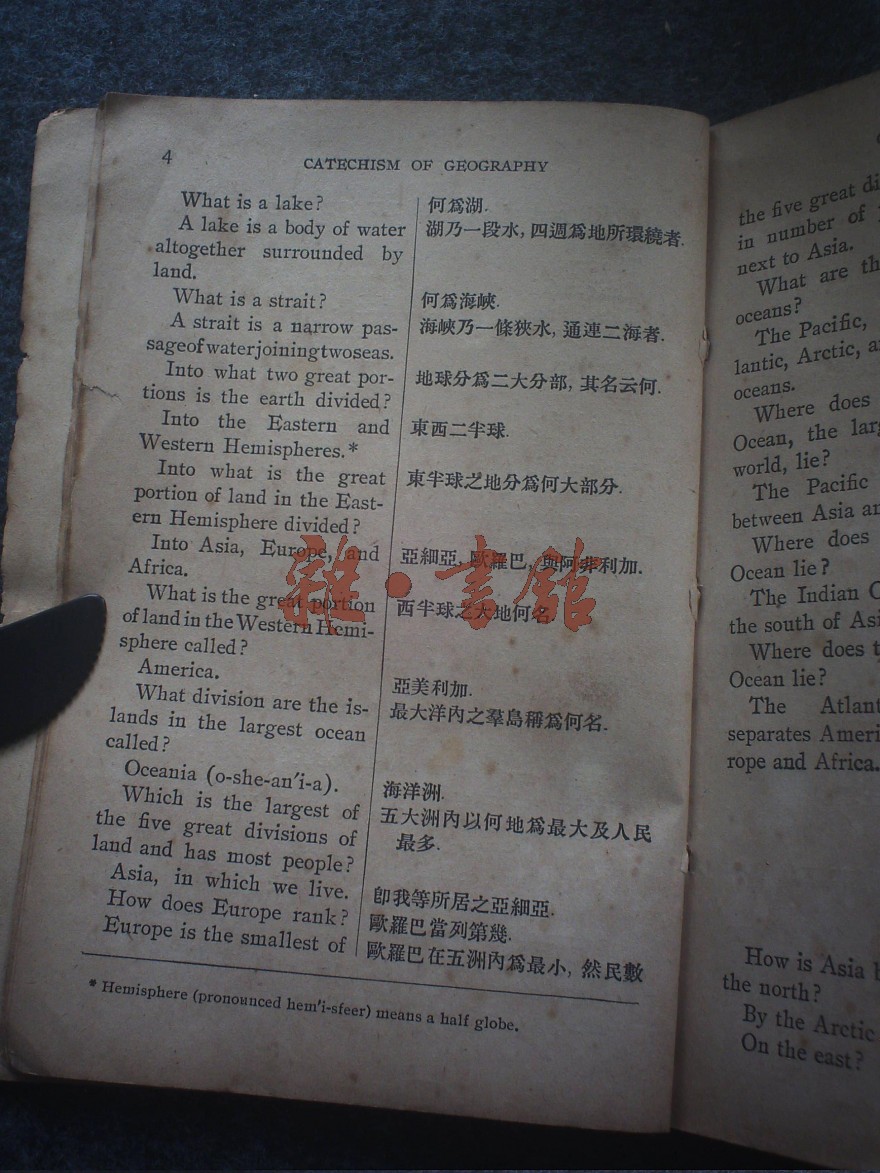 4
CATECHISM OF GEOGRAPHY
What is a lake?
A lake is a body of water
altogether surrounded by
land.
What is a strait?
A strait is a narrow pas-
sageofwaterjoiningtwoseas.
Into what two great por-
tions is the earth divided?
Into the Eastern and
Western Hemispheres.*
Into what is the great
portion of land in the East-
ern Hemisphere divided?
Into Asia, Europe, and
Africa.
What is the great portion
of land in the Western Hemi-
sphere called?
America.
What division are the is-
lands in the largest ocean
called?
Oceania (o-she-an'i-a).
Which is the largest of
the five great divisions of
land and has most people?
Asia, in which we live.
How does Europe rank?
Europe is the smallest of
何爲湖.
湖乃一段水, 四週爲地所環繞者.
何爲海峽.
海峽乃一條狹水, 通連二海者.
地球分爲二大分部, 其名云何.
東西二半球.
東半球之地分爲何大部分.
亞細亞, 歐羅巴, 與阿非利加.
西半球之大地何名.
亞美利加.
最大洋內之羣島稱爲何名.
海洋洲.
五大洲內以何地爲最大及人民
最多.
卽我等所居之亞細亞.
歐羅巴當列第幾.
歐羅巴在五洲內爲最小, 然民數
* Hemisphere (pronounced hem'i-sfeer) means a half globe.
雜·書館
the five great di
in number of
next to Asia.
What are th
oceans?
The Pacific,
lantic, Arctic, a
oceans.
Where does
Ocean, the larg
world, lie?
The Pacific
between Asia an
Where does
Ocean lie?
The Indian O
the south of Asi
Where does t
Ocean lie?
The Atlant
separates Ameri
rope and Africa.
How is Asia b
the north?
By the Arctic
On the east?